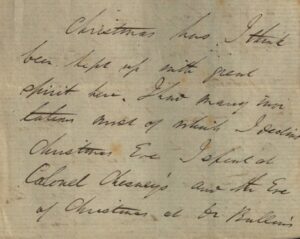 Christmas has I think
been kept up with great
spirit here. I had many invi
tations most of which I declined
Christmas Eve I spent at
Colonel Chesney's and the Eve
of Christmas at Dr Bullen's